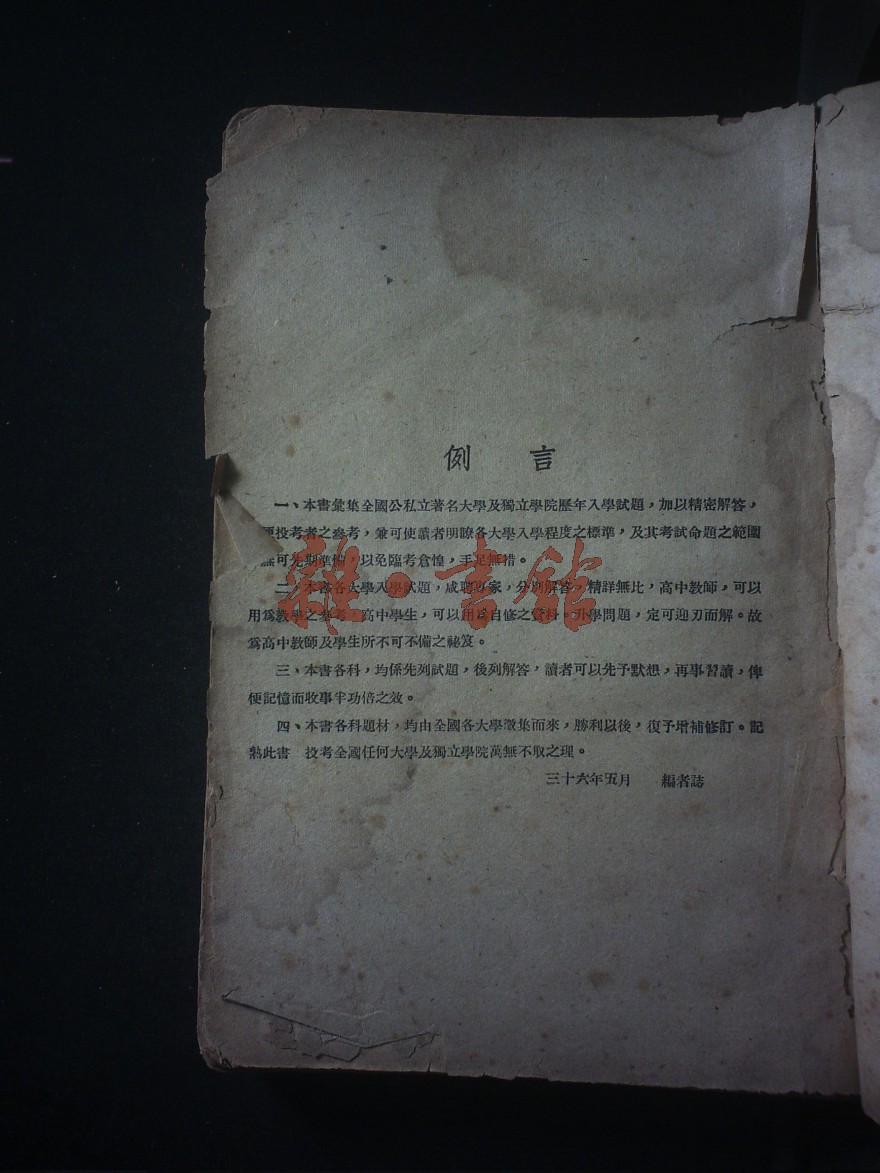 例言
一、本書彙集全國公私立著名大學及獨立學院歷年入學試題，加以精密解答，
投考者之參考，兼可使讀者明瞭各大學入學程度之標準，及其考試命題之範圍
無可先期準備，以免臨考倉惶，手足無措。
二、本書各大學入學試題，咸聘專家，分別解答，精詳無比，高中教師，可以
用爲教學之參考，高中學生，可以用爲自修之資料。升學問題，定可迎刃而解。故
爲高中教師及學生所不可不備之祕笈。
三、本書各科，均係先列試題，後列解答，讀者可以先予默想，再事習讀，俾
便記憶而收事半功倍之效。
四、本書各科題材，均由全國各大學徵集而來，勝利以後，復予增補修訂。記
熟此書 投考全國任何大學及獨立學院萬無不取之理。
三十六年五月 編者誌
雜·書館